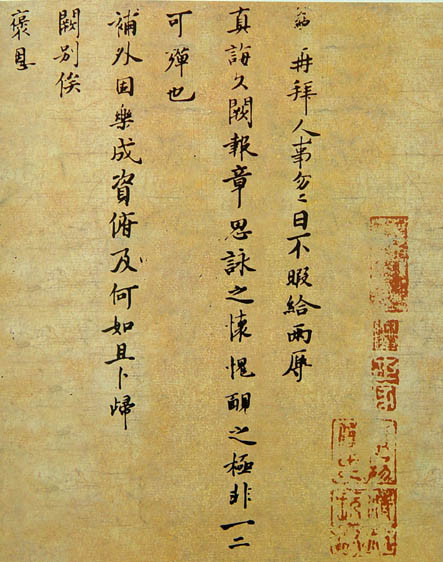 再拜人事匆〻日不暇給兩辱
真誨久闕報章思詠之懷愧靦之極非一二
可殫也
補外固樂成資俯及何如且卜歸
闕別俟
褒恩